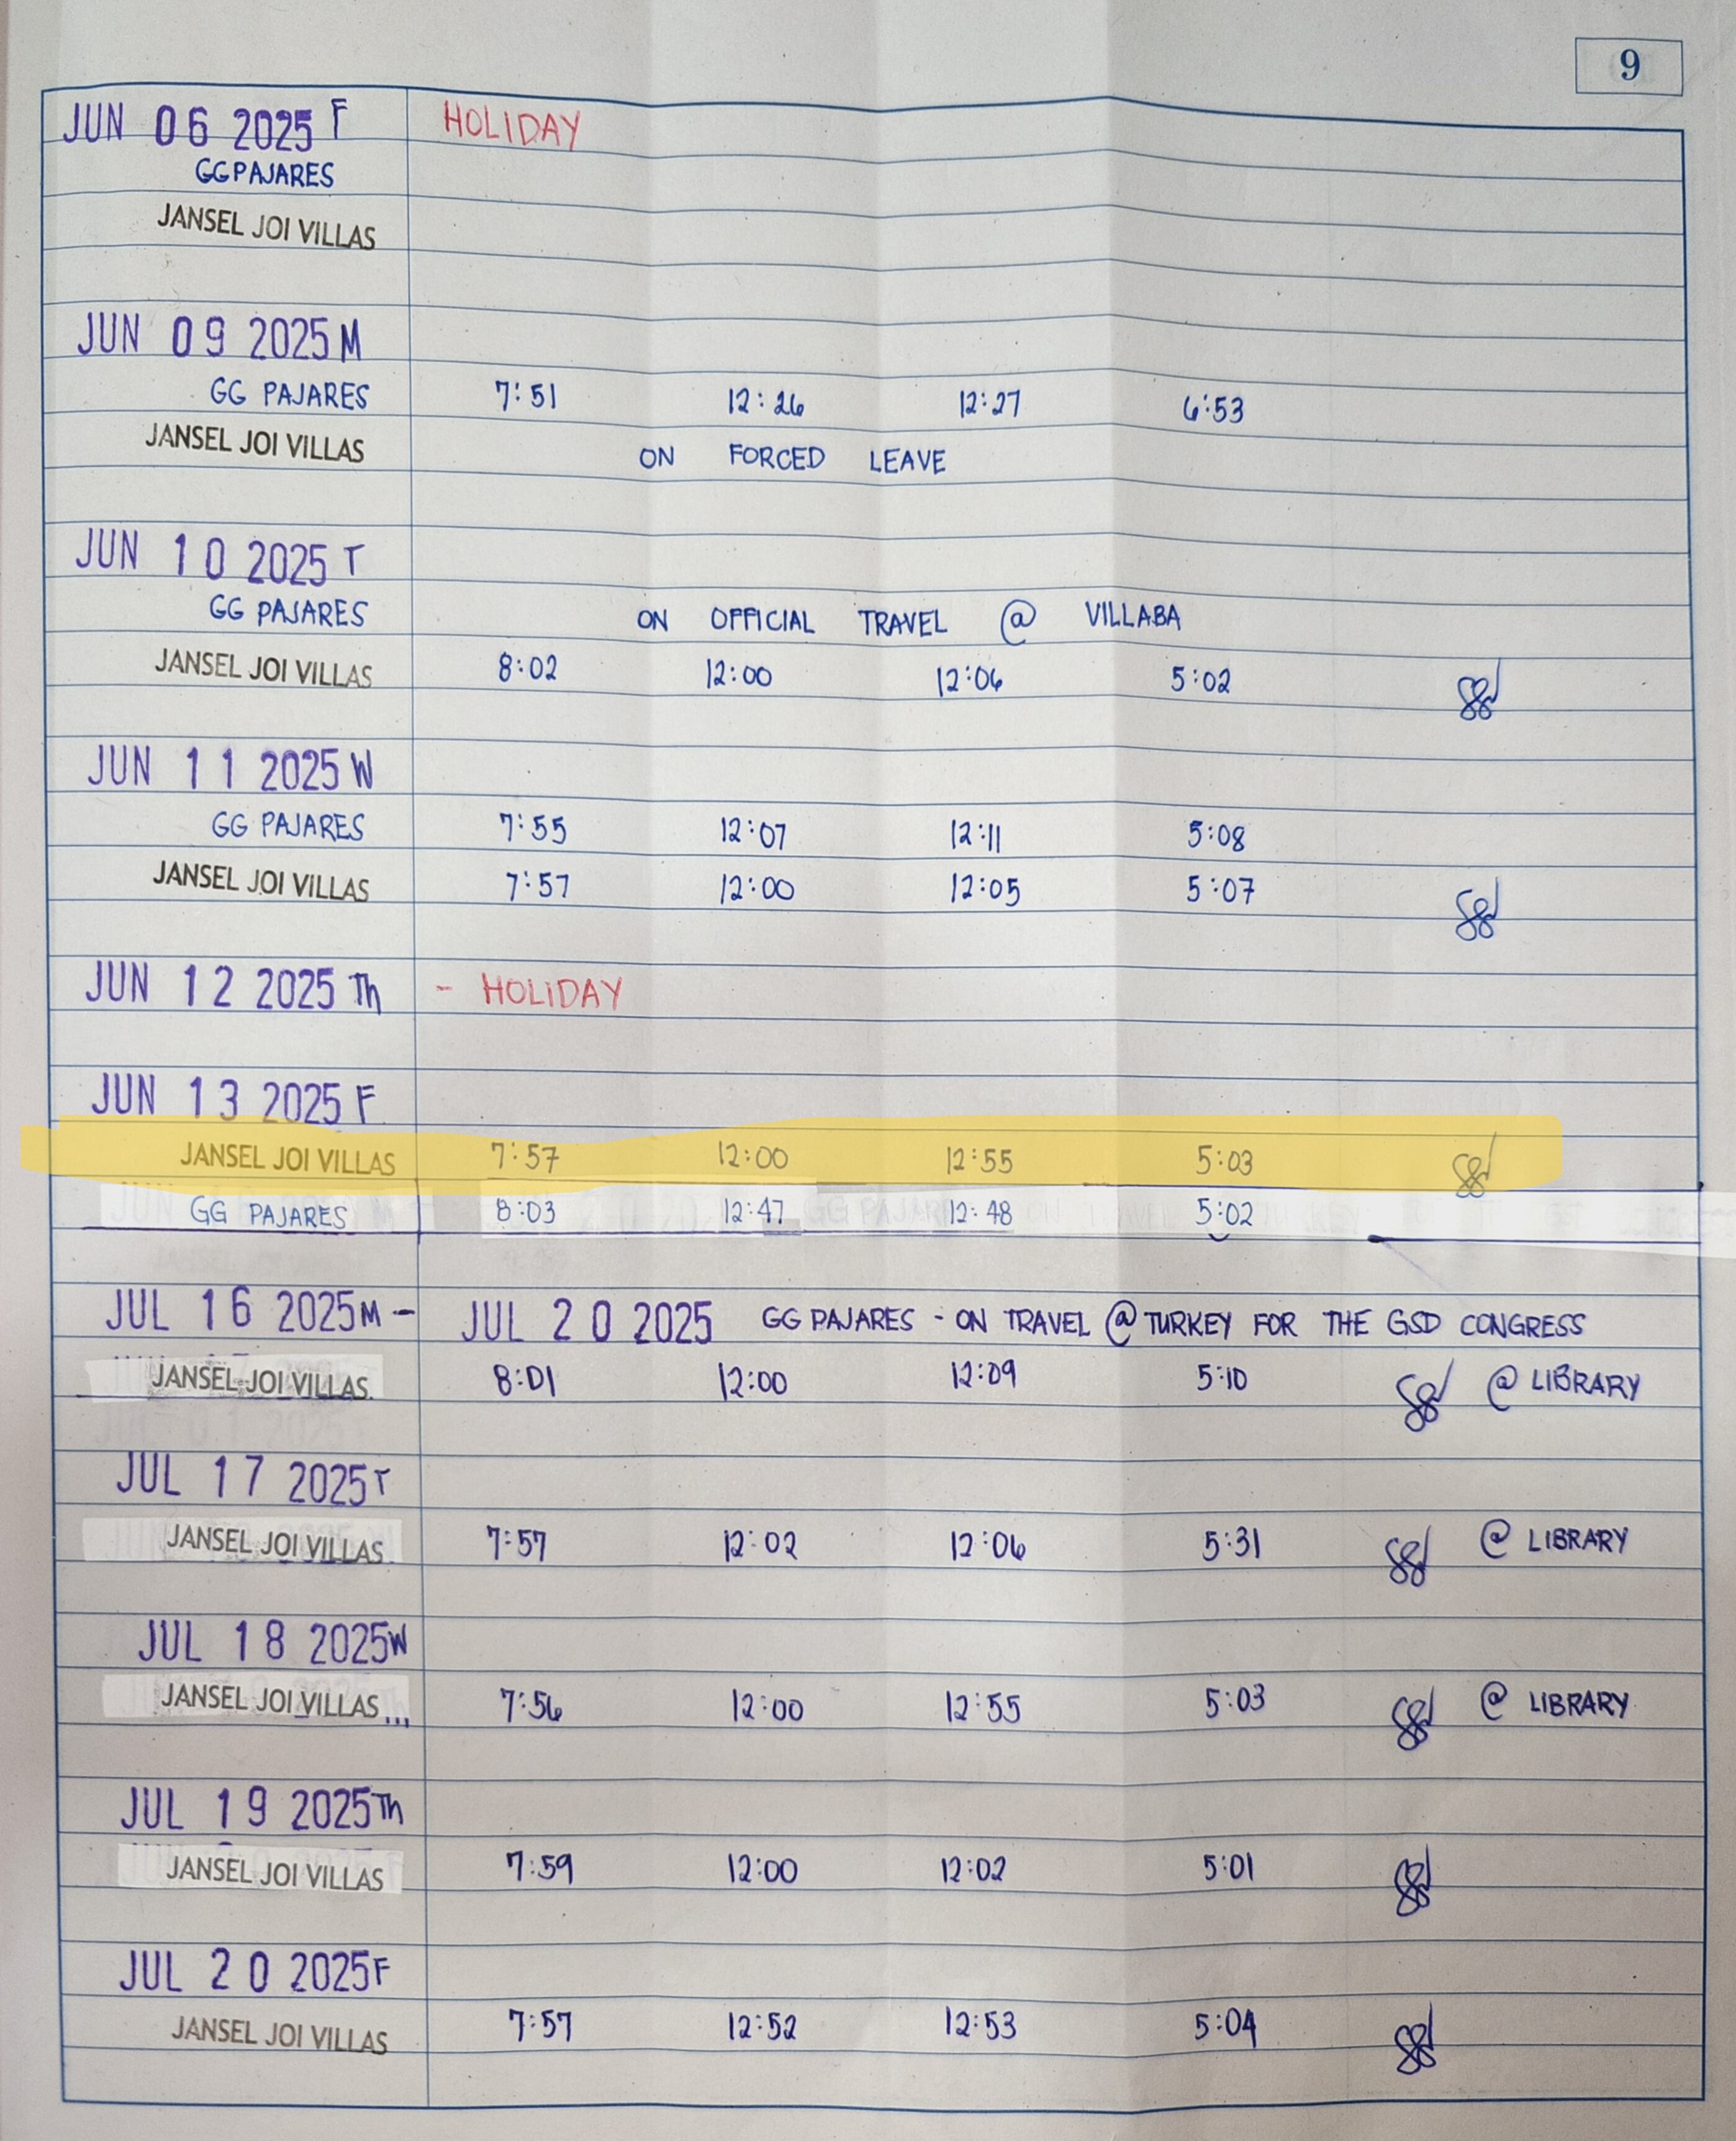 9
JUN 06 2025 F HOLIDAY
GG PAJARES
JANSEL JOI VILLAS
JUN 09 2025 M
GG PAJARES 7:51 12:26 12:27 6:53
JANSEL JOI VILLAS ON FORCED LEAVE
JUN 10 2025 T
GG PAJARES ON OFFICIAL TRAVEL @ VILLABA
JANSEL JOI VILLAS 8:02 12:00 12:06 5:02
JUN 11 2025 W
GG PAJARES 7:55 12:07 12:11 5:08
JANSEL JOI VILLAS 7:57 12:00 12:05 5:07
JUN 12 2025 Th - HOLIDAY
JUN 13 2025 F
JANSEL JOI VILLAS 7:57 12:00 12:55 5:03
GG PAJARES 8:03 12:47 12:48 5:02
JUL 16 2025 M - JUL 20 2025 GG PAJARES - ON TRAVEL @ TURKEY FOR THE GSD CONGRESS
JANSEL JOI VILLAS 8:01 12:00 12:09 5:10 @ LIBRARY
JUL 17 2025 T
JANSEL JOI VILLAS 7:57 12:02 12:06 5:31 @ LIBRARY
JUL 18 2025 W
JANSEL JOI VILLAS 7:56 12:00 12:55 5:03 @ LIBRARY
JUL 19 2025 Th
JANSEL JOI VILLAS 7:59 12:00 12:02 5:01
JUL 20 2025 F
JANSEL JOI VILLAS 7:57 12:52 12:53 5:04